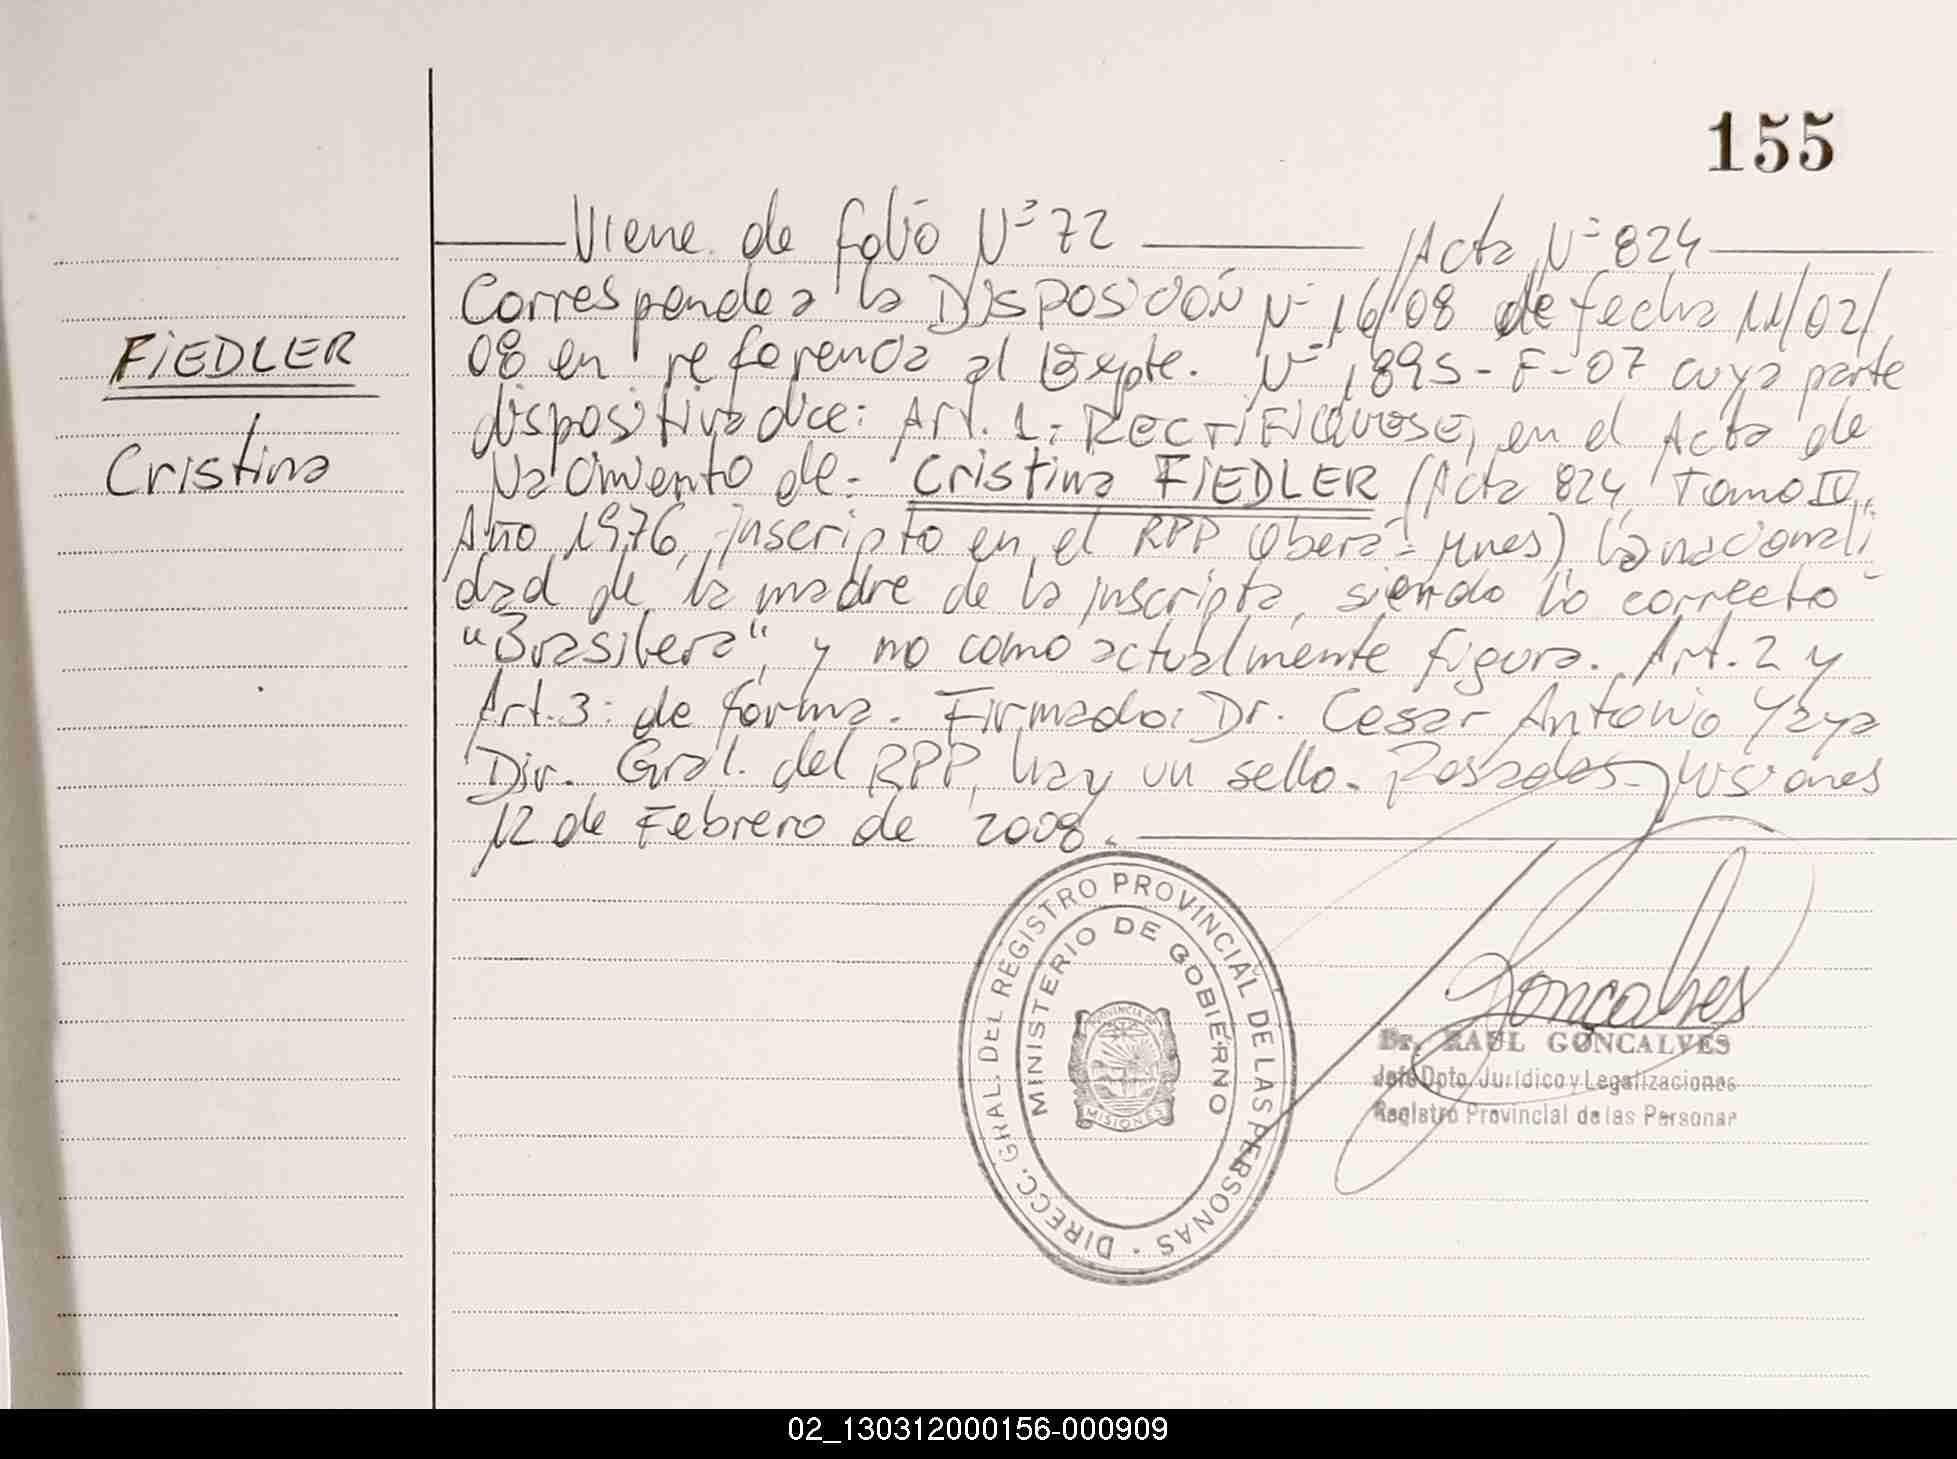 155
Viene de folio Nº 72 Acta Nº 824
Corresponde a la Disposición Nº 16/08 de fecha 11/02/
08 en referencia al Expte. Nº 1895-F-07 cuya parte
FiEDLER
dispositiva dice: Art. 1: RECTIFIQUESE, en el Acta de
Cristina
Nacimiento de: Cristina FiEDLER (Acta 824, Tomo IV,
Año 1976, inscripto en el RPP Oberá - Mnes) la nacionali
dad de la madre de la inscripta, siendo lo correcto
"Brasilera", y no como actualmente figura. Art. 2 y
Art. 3: de forma. Firmado: Dr. Cesar Antonio Yaya
Dir. Gral. del RPP, hay un sello. Posadas, Misiones
12 de Febrero de 2008.
DIRECC. GRAL. DEL REGISTRO PROVINCIAL DE LAS PERSONAS
MINISTERIO DE GOBIERNO
PROVINCIA DE
MISIONES
Gonçalves
Dr. RAUL GONCALVES
Jefe Dpto. Jurídico y Legalizaciones
Registro Provincial de las Personas
02_130312000156-000909